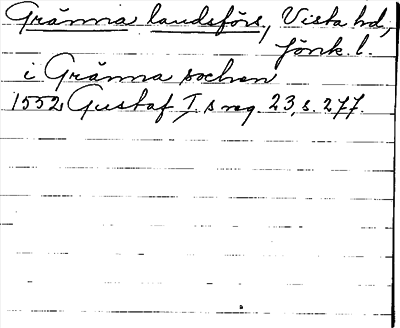 Gränna landsförs., Vista hd,
Jönk. l.
i Gränna socken
1552 Gustaf I s reg. 23, s. 277.